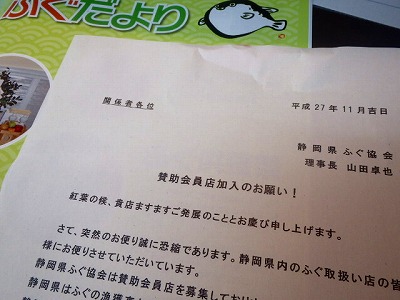 ふぐだより
関係者各位
平成27年11月吉日
静岡県ふぐ協会
理事長 山田卓也
賛助会員店加入のお願い！
紅葉の候、貴店ますますご発展のこととお慶び申し上げます。
さて、突然のお便り誠に恐縮であります。静岡県内のふぐ取扱い店の皆
様にお便りさせていただいています。
静岡県ふぐ協会は賛助会員店を募集しており
静岡県はふぐの漁獲高